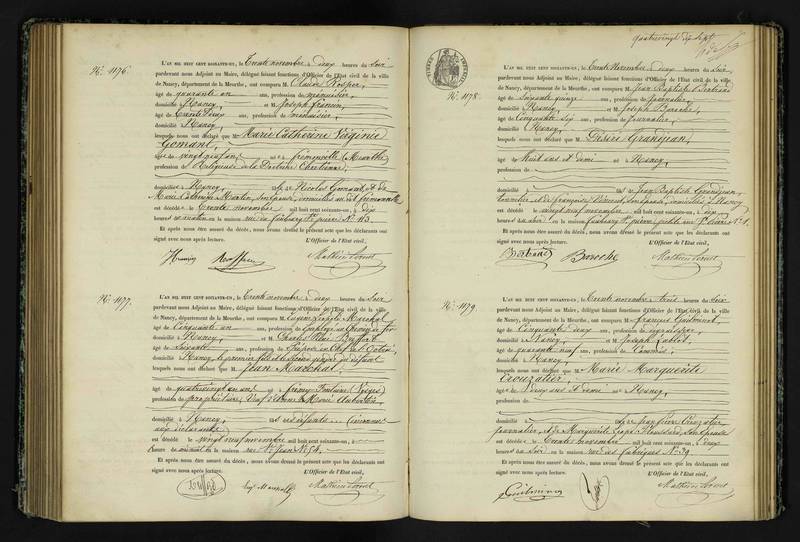 N.º 1176.
L'AN MIL HUIT CENT SOIXANTE-UN, le Trente novembre à deux heures du soir
pardevant nous Adjoint au Maire, délégué faisant fonctions d'Officier de l'Etat civil de la ville
de Nancy, département de la Meurthe, ont comparu M. Claude Rosfer,
âgé de quarante un ans, profession de menuisier,
domicilié à Nancy, et M. Joseph
âgé de trente deux ans, profession de menuisier,
domicilié à Nancy,
lesquels nous ont déclaré que Marie Catherine Virginie
Gomant,
âgée de vingt neuf ans née à frémonville (Meurthe)
profession de Religieuse de la Doctrine Chrétienne,
domiciliée à Nancy, fille de Nicolas Gomant, et de
Marie Catherine Martin, son épouse, domiciliés à frémonville
est décédée le trente novembre mil huit cent soixante-un, à dix
heures du matin en la maison rue du faubourg St pierre N.º 113
Et après nous être assuré du décès, nous avons dressé le présent acte que les déclarants ont
signé avec nous après lecture. L'Officier de l'Etat civil,
N.º 1177.
L'AN MIL HUIT CENT SOIXANTE-UN, le Trente novembre à deux heures du soir
pardevant nous Adjoint au Maire, délégué faisant fonctions d'Officier de l'Etat civil de la ville
de Nancy, département de la Meurthe, ont comparu M. Eugène Léopold Marchal
âgé de Cinquante un ans, profession de Employé au Chemin de fer
domicilié à Nancy et M. Charles
âgé de Soixante ans, profession de
domicilié à Nancy, le premier fils et le second gendre du défunt
lesquels nous ont déclaré que M. Jean Marchal,
âgé de quatrevingt un ans né à (Vosges)
profession de propriétaire, Veuf d'Anne Marie Aubertin,
domicilié à Nancy,
aux déclarants
est décédé le vingt neuf novembre mil huit cent soixante-un, à
heures du matin en la maison rue St Jean N.º 54
Et après nous être assuré du décès, nous avons dressé le présent acte que les déclarants ont
signé avec nous après lecture. L'Officier de l'Etat civil,
quatrevingt dix sept
N.º 1178.
L'AN MIL HUIT CENT SOIXANTE-UN, le Trente Novembre à deux heures du soir
pardevant nous Adjoint au Maire, délégué faisant fonctions d'Officier de l'Etat civil de la ville
de Nancy, département de la Meurthe, ont comparu M. Jean Baptiste Bertrand
âgé de Soixante quinze ans, profession de journalier,
domicilié à Nancy et M. Joseph Baroche
âgé de Cinquante six ans, profession de journalier,
domicilié à Nancy,
lesquels nous ont déclaré que Désiré Grandjean,
âgé de huit ans et demi né à Nancy,
profession de
domicilié fils de Jean Baptiste Grandjean,
tonnelier et de françoise son épouse, domiciliés à Nancy
est décédé le vingt neuf novembre mil huit cent soixante-un, à six
heures du soir en la maison faubourg St pierre N.º 1.
Et après nous être assuré du décès, nous avons dressé le présent acte que les déclarants ont
signé avec nous après lecture. L'Officier de l'Etat civil,
Bertrand Baroche
N.º 1179
L'AN MIL HUIT CENT SOIXANTE-UN, le Trente novembre à trois heures du soir
pardevant nous Adjoint au Maire, délégué faisant fonctions d'Officier de l'Etat civil de la ville
de Nancy, département de la Meurthe, ont comparu M. françois Guilminot,
âgé de Cinquante deux ans, profession de
domicilié à Nancy, et M. Joseph
âgé de quarante neuf ans, profession de Commis,
domicilié à Nancy,
lesquels nous ont déclaré que Marie Marguerite
Crouzatier,
âgée de deux ans et demi née à Nancy,
profession de
domiciliée fille de Jean Pierre Crouzatier
journalier, et de Marguerite son épouse
est décédée le Trente novembre mil huit cent soixante-un, à deux
heures du soir en la maison rue des fabriques N.º 39
Et après nous être assuré du décès, nous avons dressé le présent acte que les déclarants ont
signé avec nous après lecture. L'Officier de l'Etat civil,